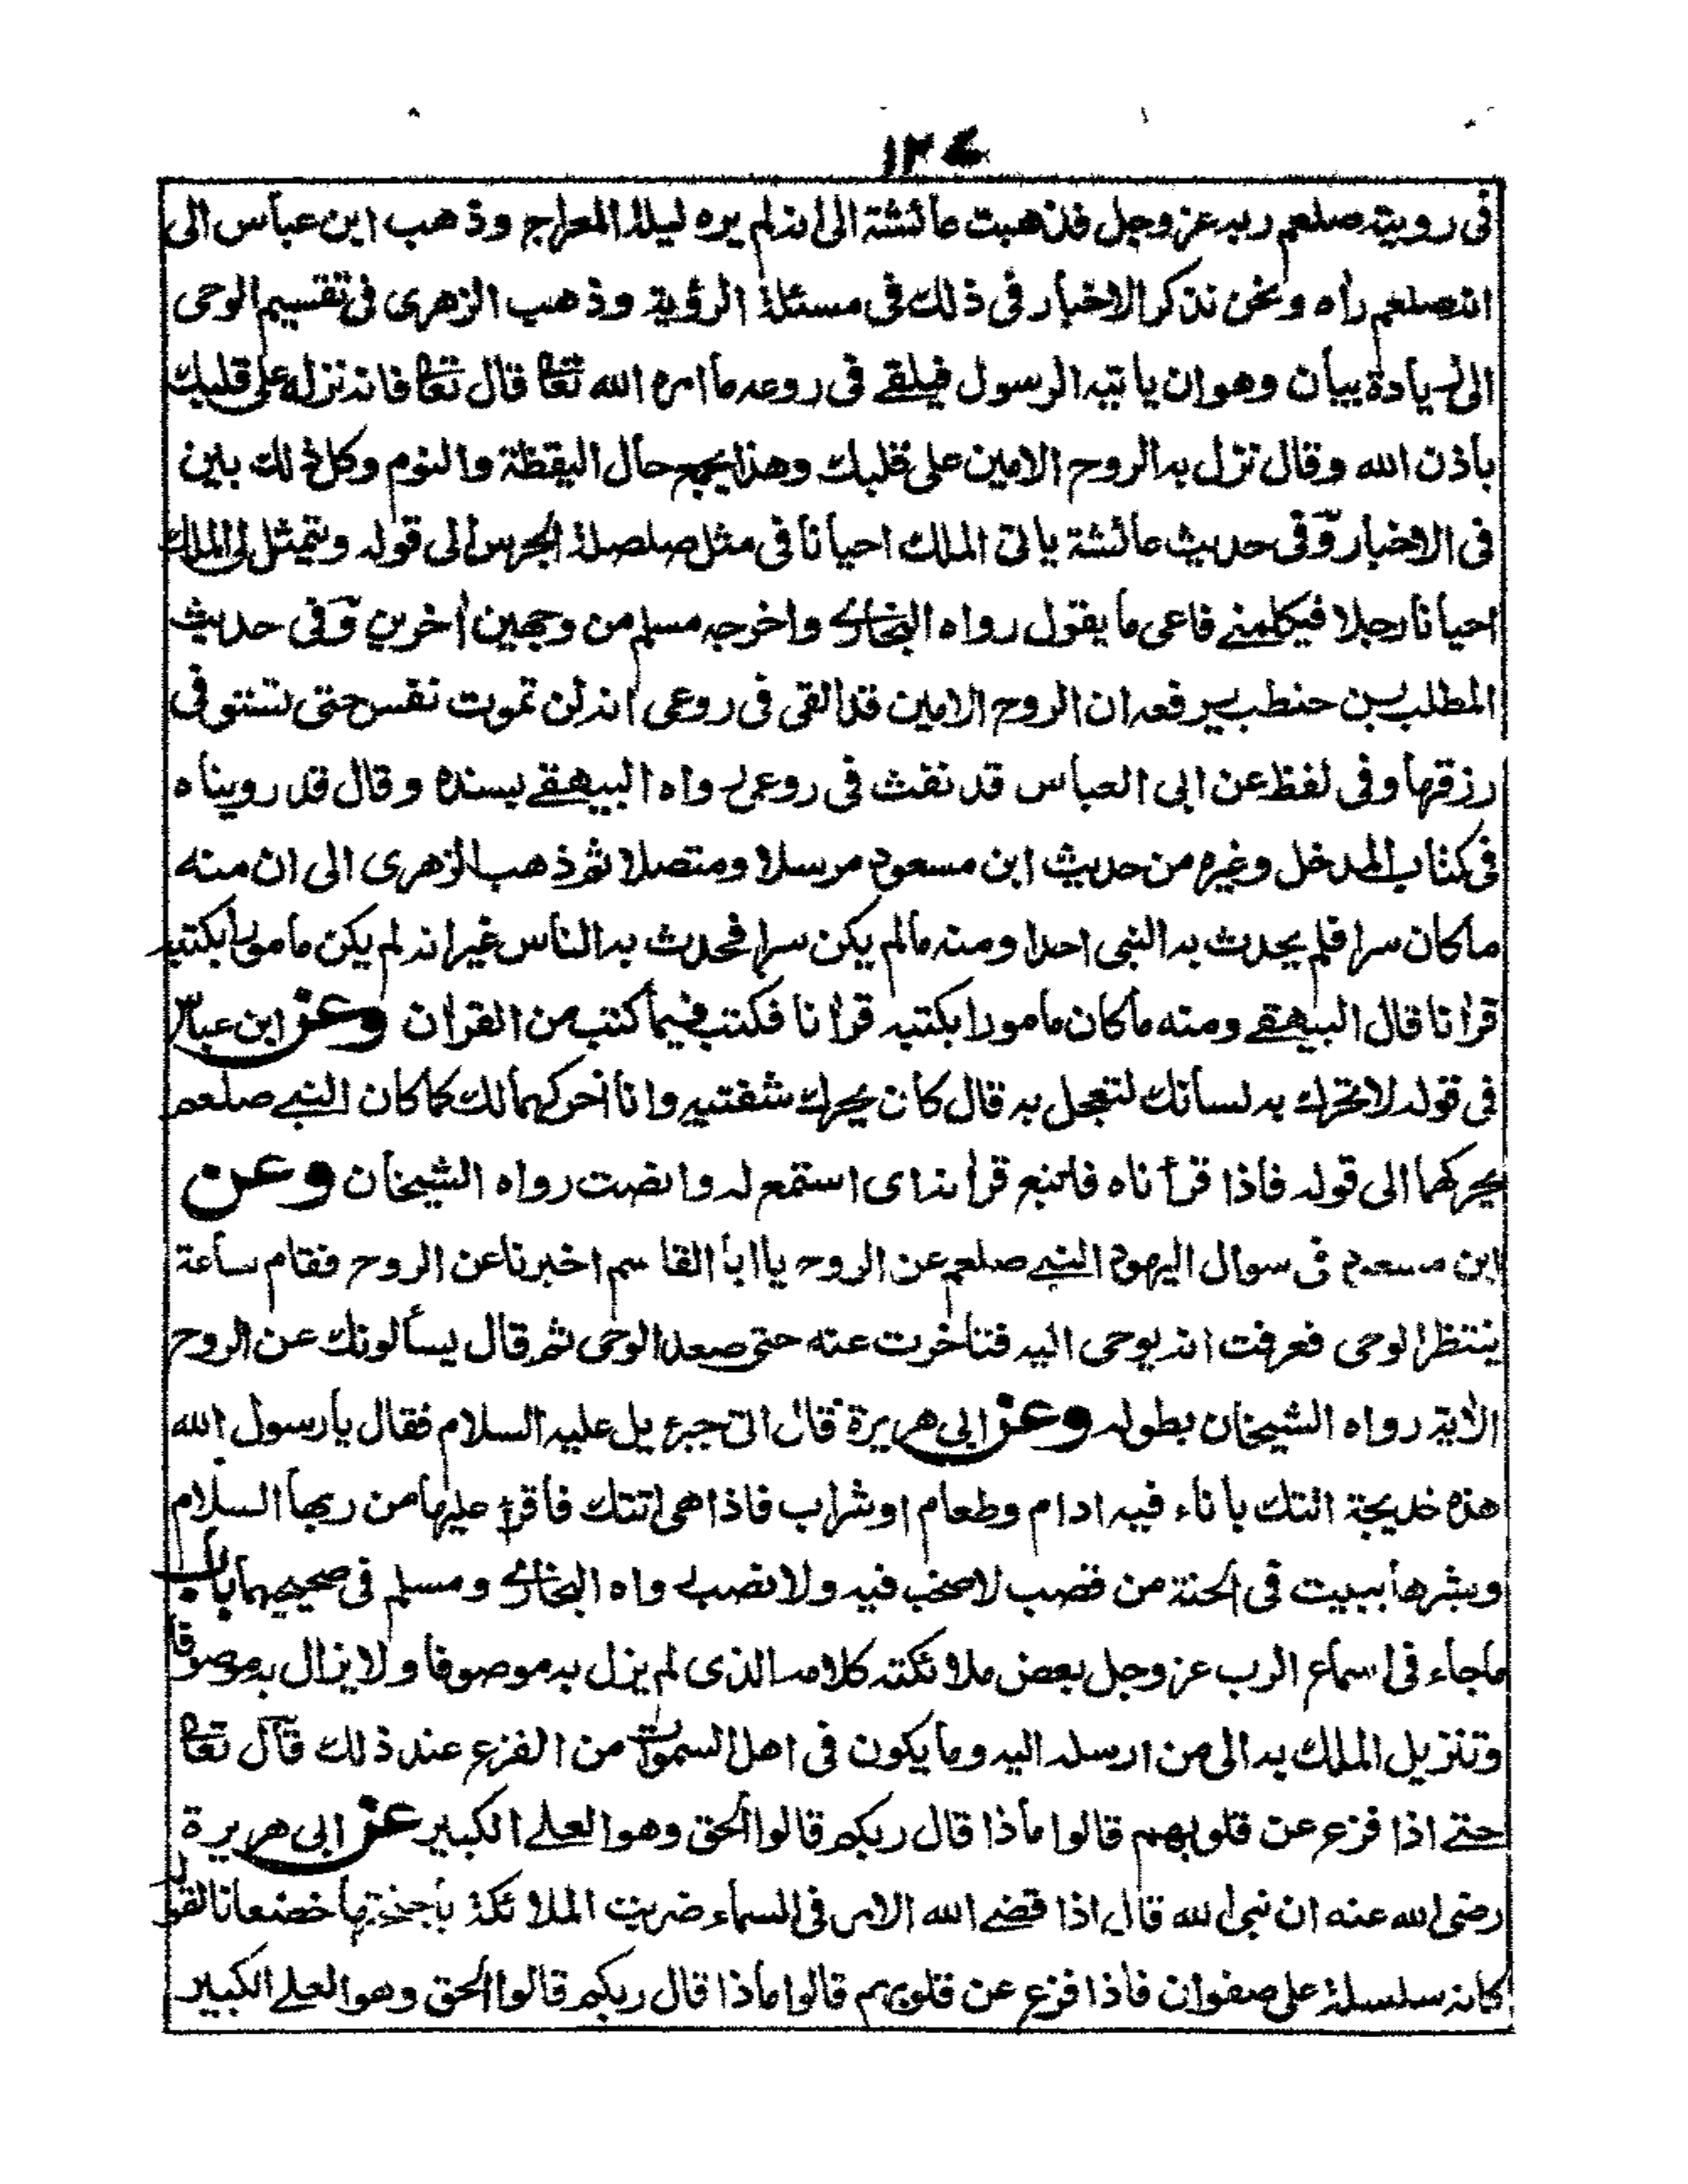 في رويته صلعم ربه عز وجل فذهبت عائشة الى انه لم يره ليلة المعراج وذهب ابن عباس الى
انه صلعم رأه ونحن نذكر الاخبار في ذلك في مسئلة الرؤية وذهب الزهرى في تقسيم الوحى
الى زيادة بيان وهو ان ياتيه الرسول فيلقے في روعه ما امره الله تعا قال تعا فانه نزله على قلبك
باذن الله وقال نزل به الروح الامين على قلبك وهذا يجمع حال اليقظة والنوم وكل ذلك بين
في الاخبار وفي حديث عائشة ياتى الملك احيانا في مثل صلصلة الجرس الى قوله ويتمثل لى الملك
احيانا رجلا فيكلمنے فاعى ما يقول رواه البخارے واخرجه مسلم من وجهين اخرين وفي حديث
المطلب بن حنطب يرفعه ان الروح الامين قد القى في روعى انه لن تموت نفس حتى تستوفى
رزقها وفي لفظ عن ابى العباس قد نفث في روعى رواه البيهقے بسنده وقال قد رويناه
في كتاب المدخل وغيره من حديث ابن مسعود مرسلا ومتصلا ثم ذهب الزهرى الى ان منه
ما كان سرا فلم يحدث به النبى احدا ومنه مالم يكن سرا فحدث به الناس غير انه لم يكن مامورا بكتبه
قرانا قال البيهقے ومنه ما كان مامورا بكتبه قرانا فكتب فيما كتب من القران وعن ابن عباس
في قوله لا تحرك به لسانك لتعجل به قال كان يحرك شفتيه وانا احركهما لك كما كان النبے صلعم
يحركهما الى قوله فاذا قرأناه فاتبع قرأنه اى استمع له وانصت رواه الشيخان وعن
ابن مسعود في سوال اليهود النبے صلعم عن الروح يا ابا القاسم اخبرنا عن الروح فقام ساعة
ينتظر الوحى فعرفت انه يوحى اليه فتاخرت عنه حتى صعد الوحى ثم قال يسألونك عن الروح
الاية رواه الشيخان بطوله وعن ابى هريرة قال اتى جبرئيل عليه السلام فقال يا رسول الله
هذه خديجة اتتك باناء فيه ادام وطعام او شراب فاذا هى اتتك فاقرأ عليها من ربها السلام
وبشرها ببيت في الجنة من قصب لا صخب فيه ولا نصب رواه البخارے ومسلم في صحيحيهما باب
ما جاء في اسماع الرب عز وجل بعض ملائكته كلامه الذى لم يزل به موصوفا ولا يزال به موصوفا
وتنزيل الملك به الى من ارسله اليه وما يكون في اهل السموات من الفزع عند ذلك قال تعا
حتے اذا فزع عن قلوبهم قالوا ماذا قال ربكم قالوا الحق وهو العلے الكبير عن ابى هريرة
رضى الله عنه ان نبى الله قال اذا قضے الله الامر في السماء ضربت الملائكة باجنحتها خضعانا لقوله
كانه سلسلة على صفوان فاذا فزع عن قلوبهم قالوا ماذا قال ربكم قالوا الحق وهو العلے الكبير